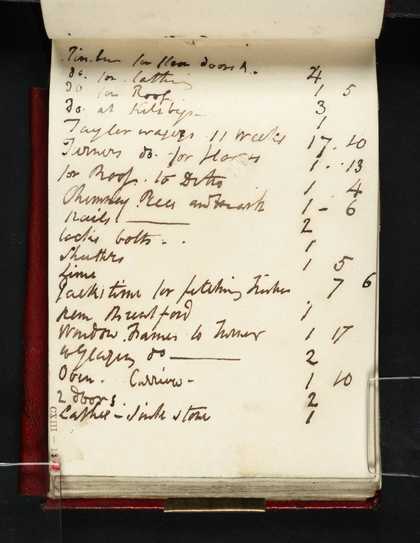 Timber for floor doors &.
do for lathing 4
do for Roof 1 5
do at Kilbys 3
Taylor wages 11 Weeks 1
Turners do. for floors 17 . 10
for Roof to Ditto 1 . 13
Chimney Piece and 1 4
Nails —— 1 - 6
locks bolts . . 2
Shutters 1
Lime 1 5
time for fetching Timber 7 6
from Brentford 1
Window Frames to Turner 1 17
Glazing do —— 2
Oven. Carriour - 1 10
2 doors 2
Lathes - Sink stone 1
CXIII